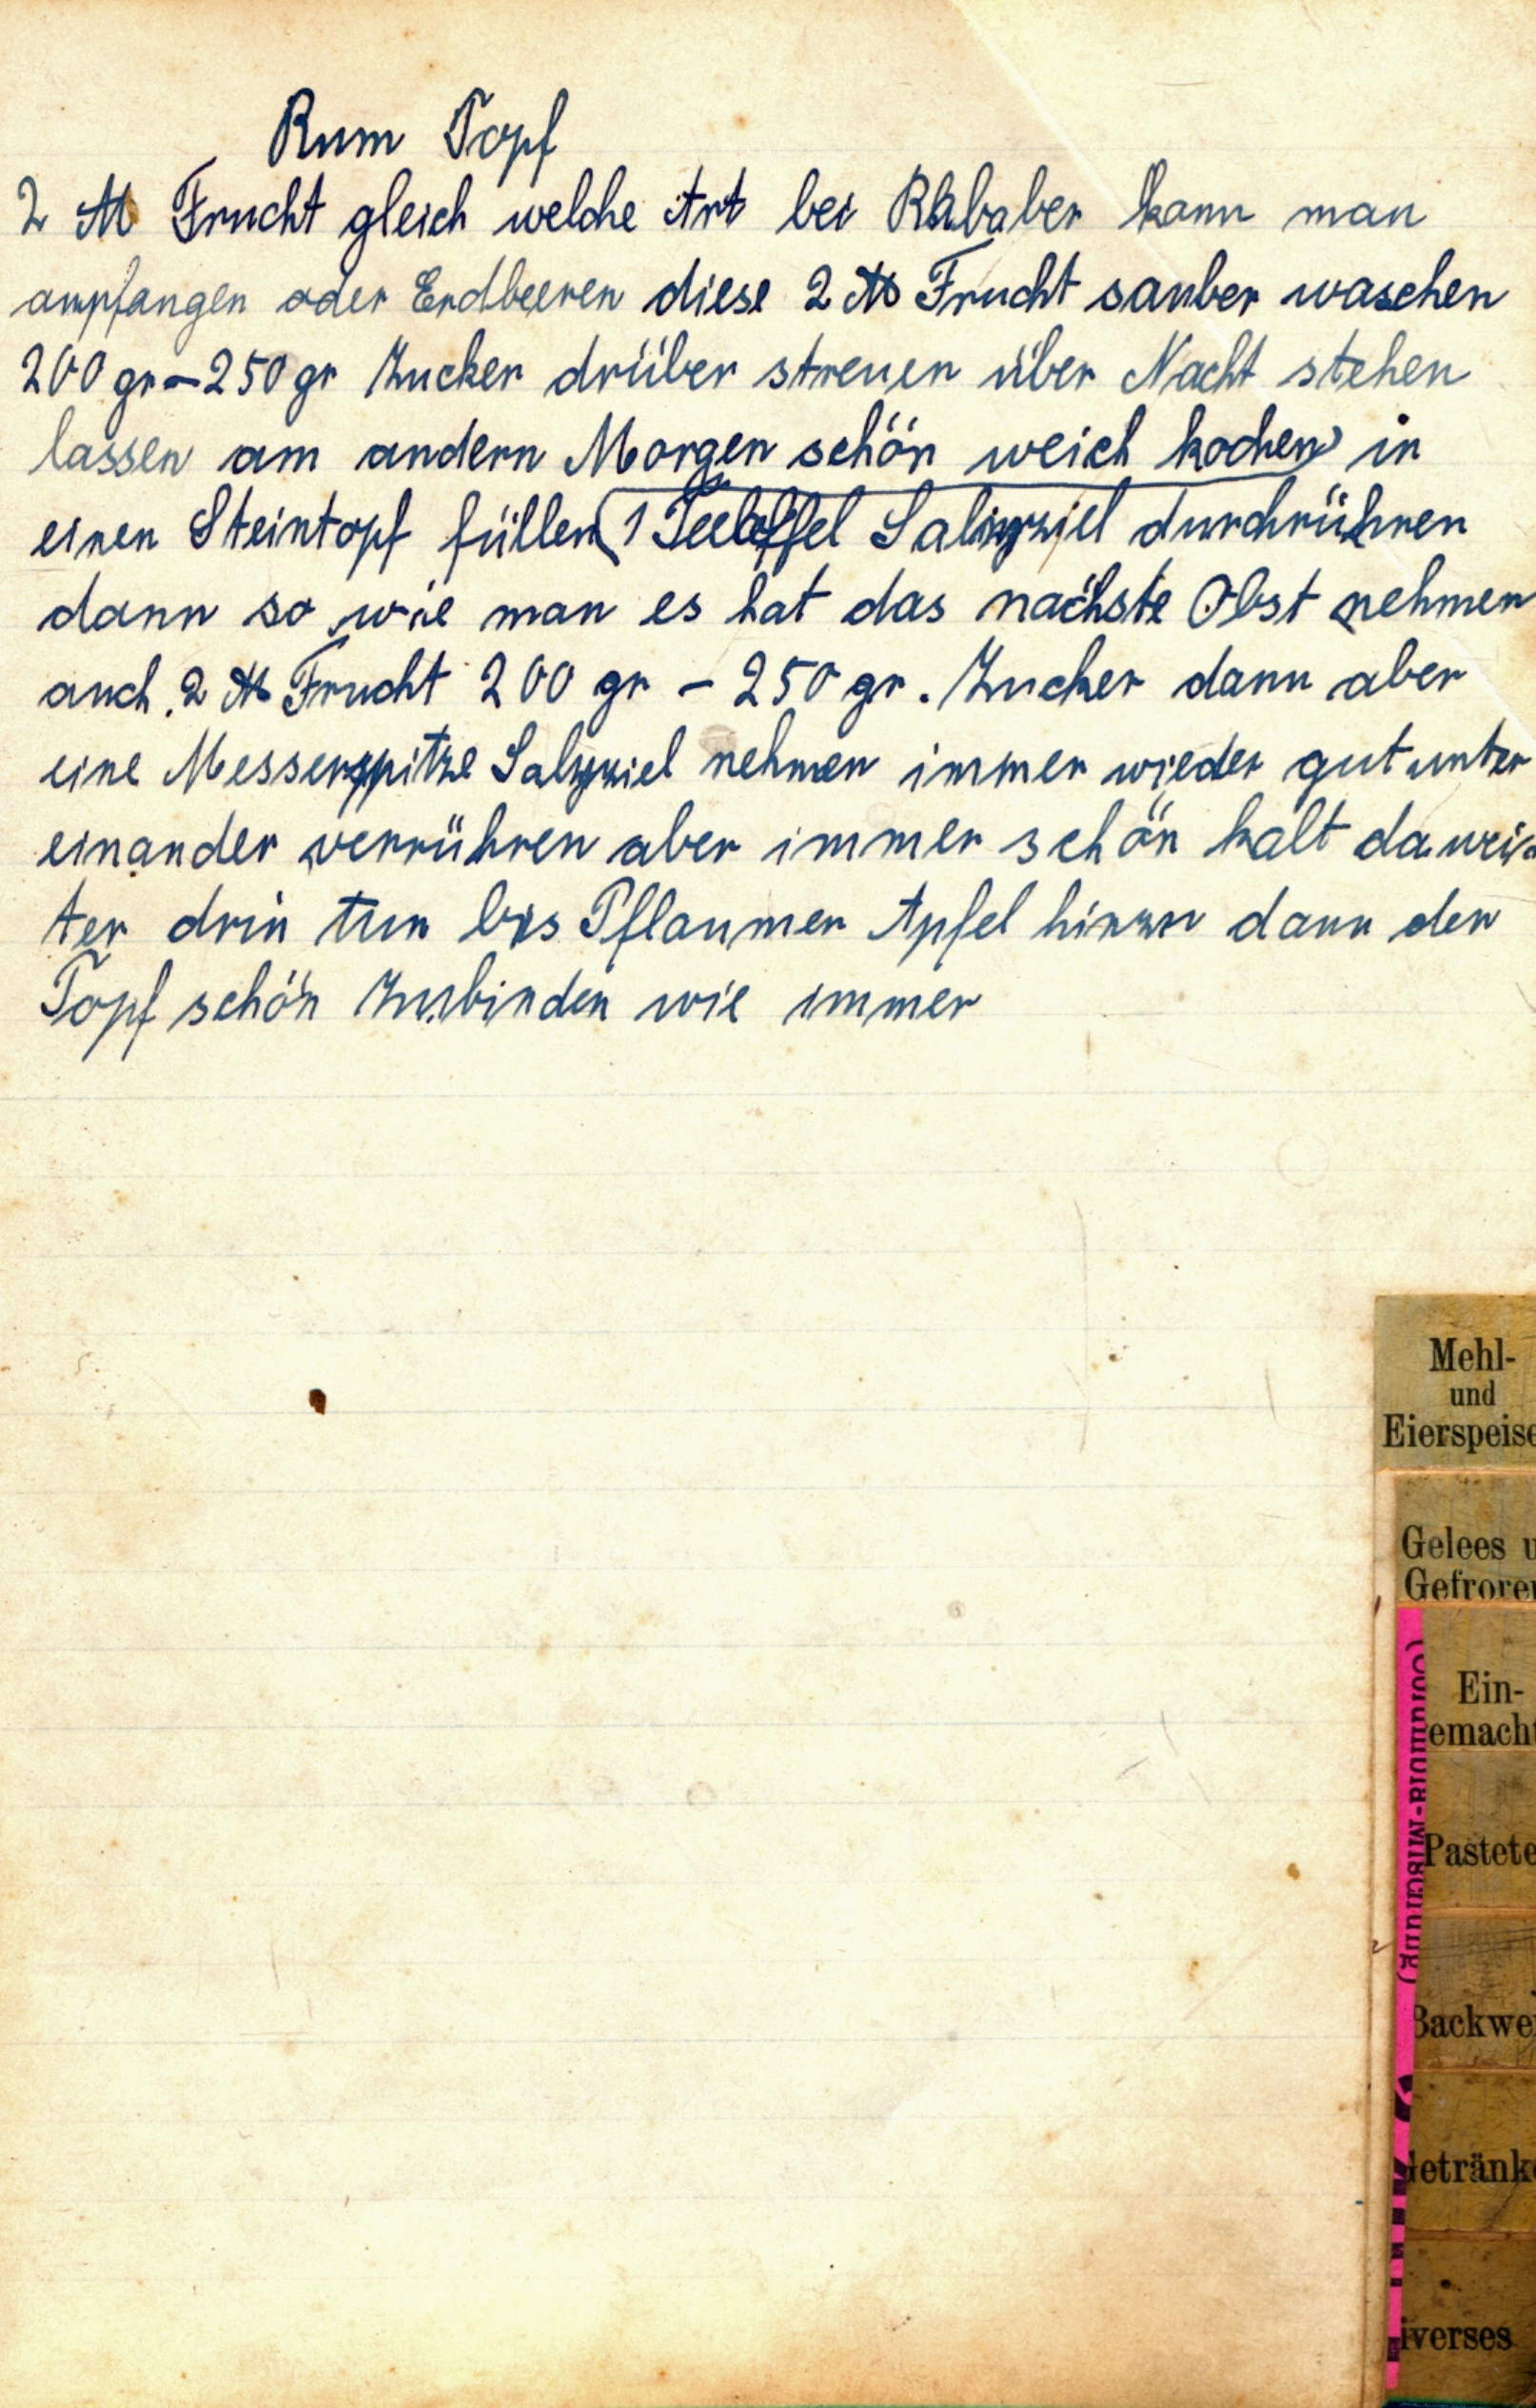 Rum Topf
2 ℔ Frucht gleich welche Art bei Rhbaber kann man
anpfangen oder Erdbeeren diese 2 ℔ Frucht sauber waschen
200 gr – 250 gr Zucker drüber streuen über Nacht stehen
lassen am andern Morgen schön weich kochen in
einen Steintopf füllen (1 Teelöffel Salizziel durchrühren
dann so wie man es hat das nächste Obst nehmen
auch 2 ℔ Frucht 200 gr – 250 gr. Zucker dann aber
eine Messerspitze Salyziel nehmen immer wieder gut unter
einander verrühren aber immer schön kalt da wei-
ter drin tun bis Pflaumen Apfel hinzu dann den
Topf schön Zubinden wie immer
Mehl-
und
Eierspeise
Gelees u
Gefroren
Ein-
emacht
Pastete
Backwe
Getränke
iverses